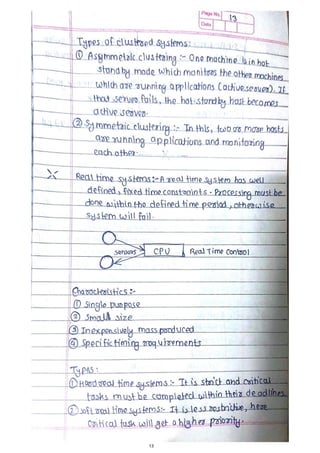 Page No. 13
Date
Types of clustered systems:
① Asymmetric clustering :- One machine is in hot
standby mode which monitors the other machines
which are running applications (active server). If
that server fails, the hot-standby host becomes
active server.
② Symmetric clustering :- In this, two or more hosts
are running applications and monitoring
each other.
X Real time systems:- A real time system has well
defined, fixed time constraints. Processing must be
done within the defined time period, otherwise
system will fail.
sensors CPU Real Time Control
Characteristics :-
① Single purpose
② Small size
③ Inexpensively mass produced
④ Specific timing requirements
Types :
① Hard real time systems :- It is strict and critical
tasks must be completed within their deadlines.
② Soft real time systems:- It is less restrictive, here
critical task will get a higher priority.
13